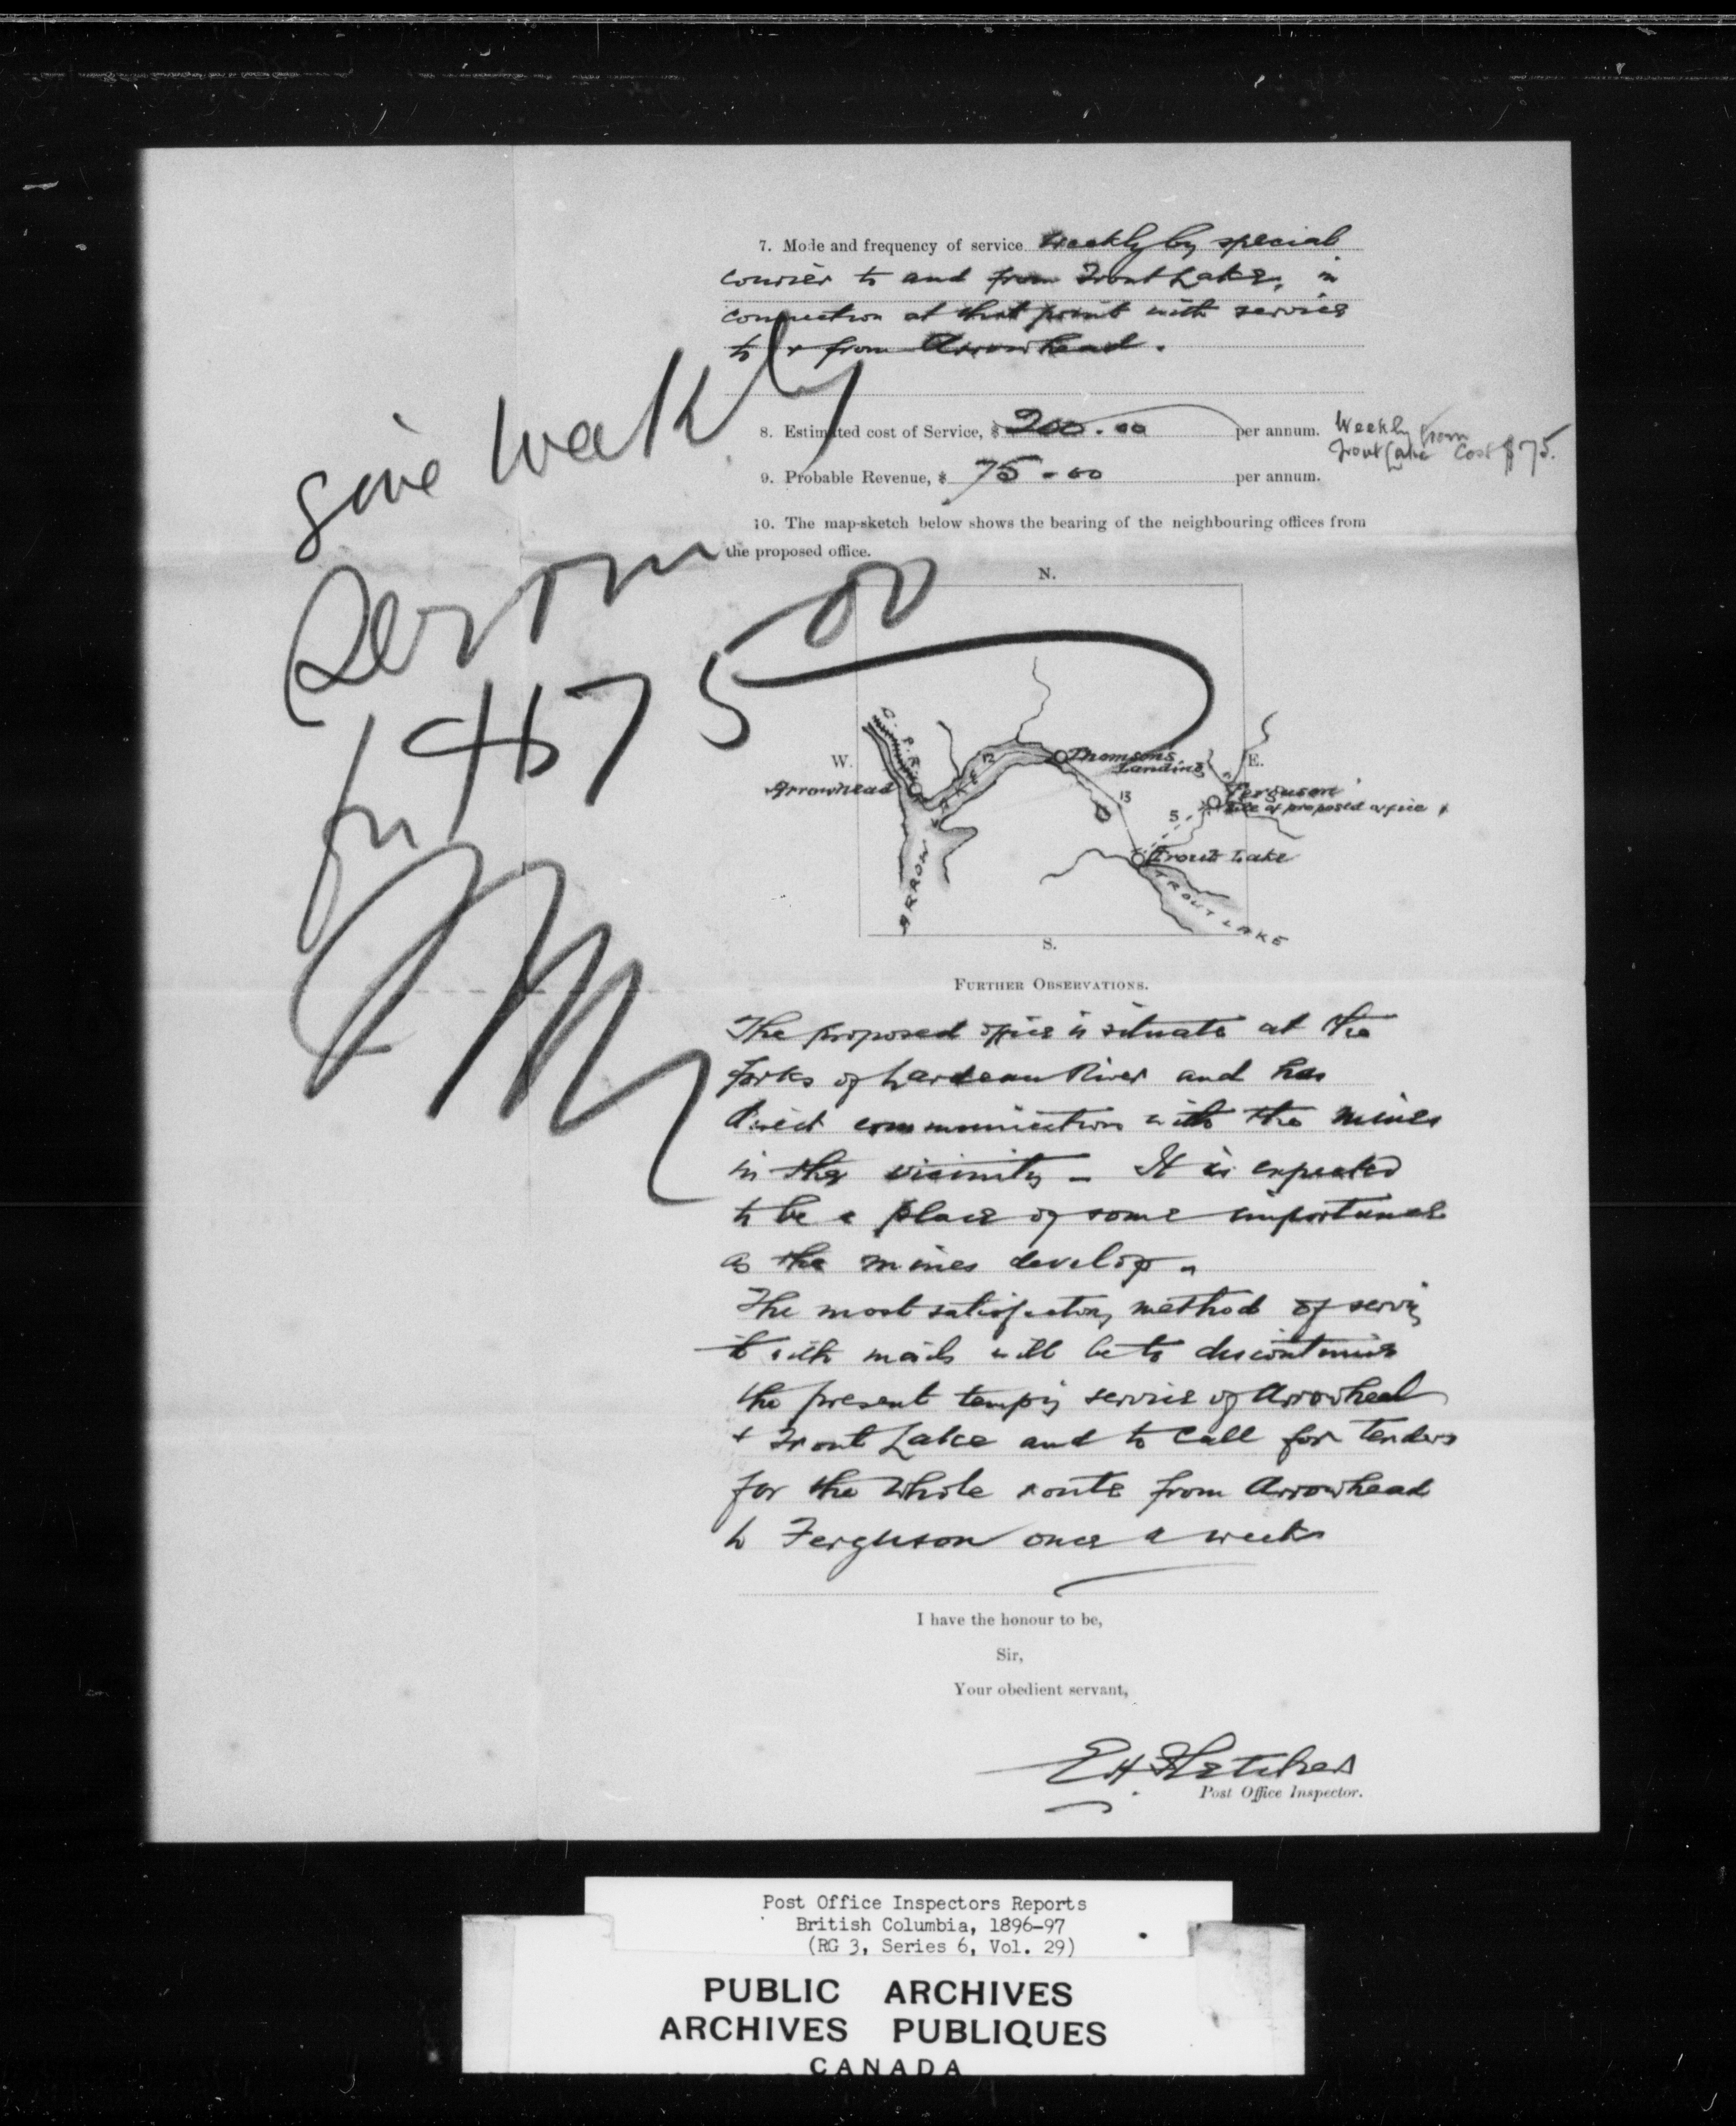 7. Mode and frequency of service Weekly by special
courier to and from Trout Lake, in
connection at that point with service
to & from Arrowhead.
8. Estimated cost of Service, $ 200.00 per annum.
Weekly from
Trout Lake Cost $75.
9. Probable Revenue, $ 75-00 per annum.
10. The map-sketch below shows the bearing of the neighbouring offices from
the proposed office.
give weekly
Service
for $75 00
N.
W.
E.
S.
C.P.R.
Arrowhead
12
Thomson's
Landing
13
Ferguson
Site of proposed office
5
Trout Lake
ARROW
TROUT LAKE
FURTHER OBSERVATIONS.
The proposed office is situate at the
forks of Lardeau River and has
direct communication with the mines
in the vicinity - It is expected
to be a place of some importance
as the mines develop.
The most satisfactory method of serving
it with mails will be to discontinue
the present tempy service of Arrowhead
& Trout Lake and to call for tenders
for the whole route from Arrowhead
to Ferguson once a week
I have the honour to be,
Sir,
Your obedient servant,
E H Fletcher
Post Office Inspector.
Post Office Inspectors Reports
British Columbia, 1896-97
(RG 3, Series 6, Vol. 29)
PUBLIC ARCHIVES
ARCHIVES PUBLIQUES
CANADA